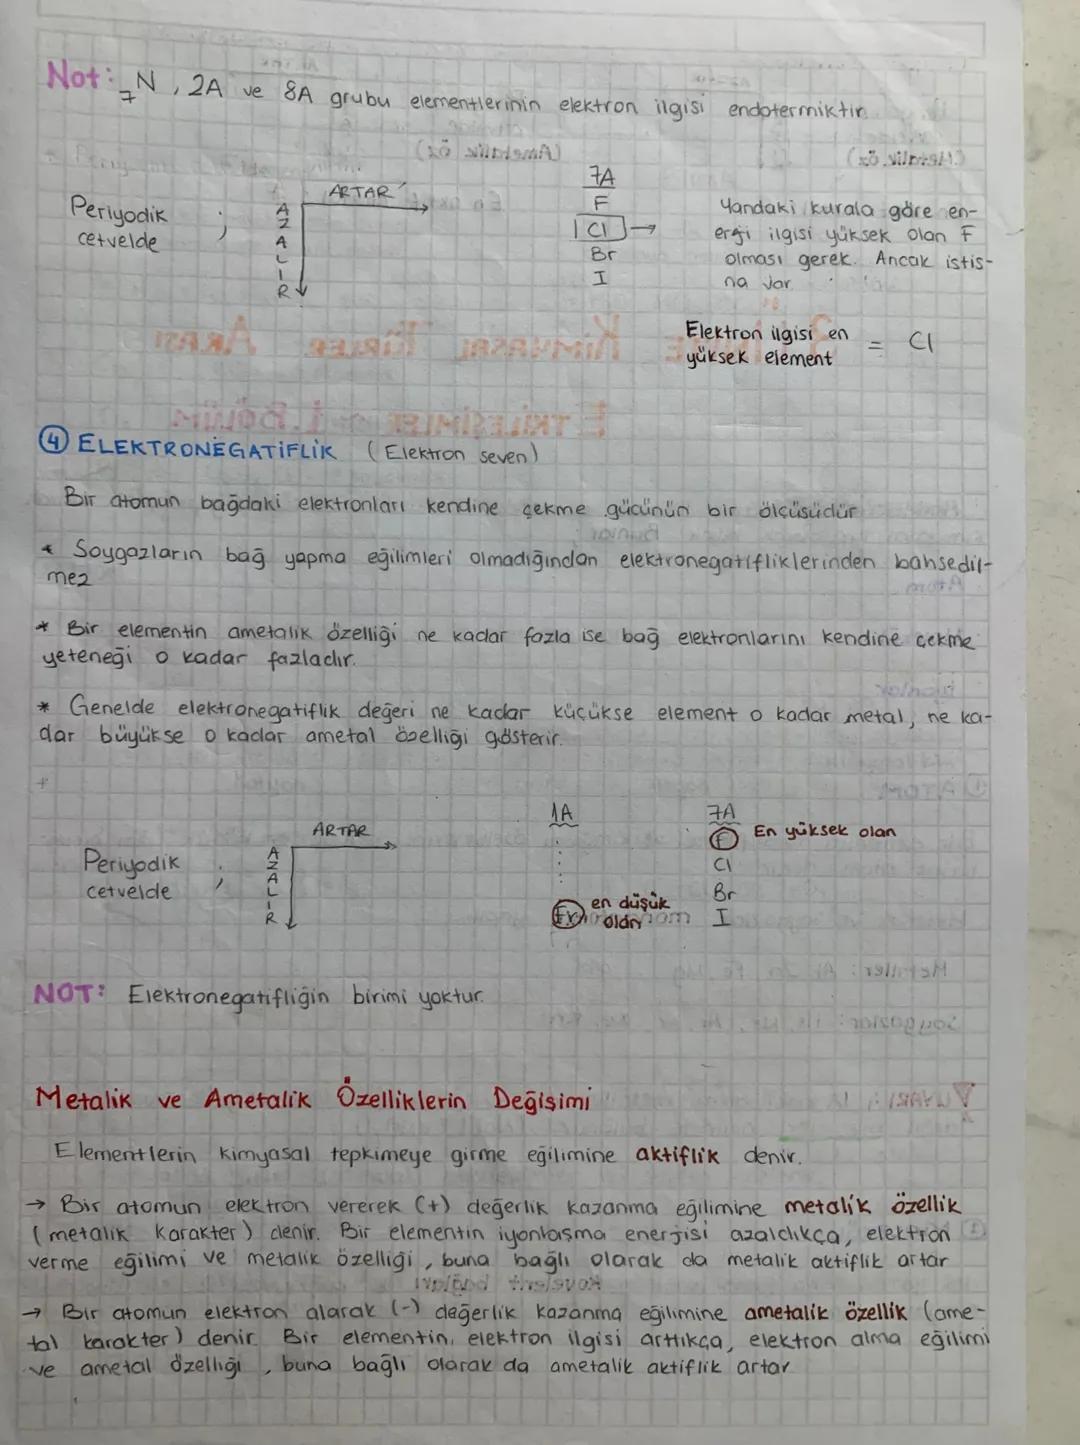 Not: ₇N, 2A ve 8A grubu elementlerinin elektron ilgisi endotermiktir.
Periyodik
cetvelde ;
AZALIR
ARTAR
7A
F
Cl →
Br
I
Yandaki kurala göre en-
erji ilgisi yüksek olan F
olması gerek. Ancak istis-
na var.
Elektron ilgisi en
yüksek element = Cl
④ ELEKTRONEGATİFLİK (Elektron seven)
Bir atomun bağdaki elektronları kendine çekme gücünün bir ölçüsüdür
* Soygazların bağ yapma eğilimleri olmadığından elektronegatifliklerinden bahsedil-
mez
* Bir elementin ametalik özelliği ne kadar fazla ise bağ elektronlarını kendine çekme
yeteneği o kadar fazladır.
* Genelde elektronegatiflik değeri ne kadar küçükse element o kadar metal, ne ka-
dar büyükse o kadar ametal özelliği gösterir.
Periyodik
cetvelde ;
AZALIR
ARTAR
1A
Fr en düşük
olan
7A
F En yüksek olan
Cl
Br
I
NOT: Elektronegatifliğin birimi yoktur.
Metalik ve Ametalik Özelliklerin Değişimi
Elementlerin kimyasal tepkimeye girme eğilimine aktiflik denir.
→ Bir atomun elektron vererek (+) değerlik kazanma eğilimine metalik özellik
(metalik karakter) denir. Bir elementin iyonlaşma enerjisi azaldıkça, elektron
verme eğilimi ve metalik özelliği, buna bağlı olarak da metalik aktiflik artar
→ Bir atomun elektron alarak (-) değerlik kazanma eğilimine ametalik özellik (ame-
tal karakter) denir. Bir elementin elektron ilgisi arttıkça, elektron alma eğilimi
ve ametal özelliği, buna bağlı olarak da ametalik aktiflik artar